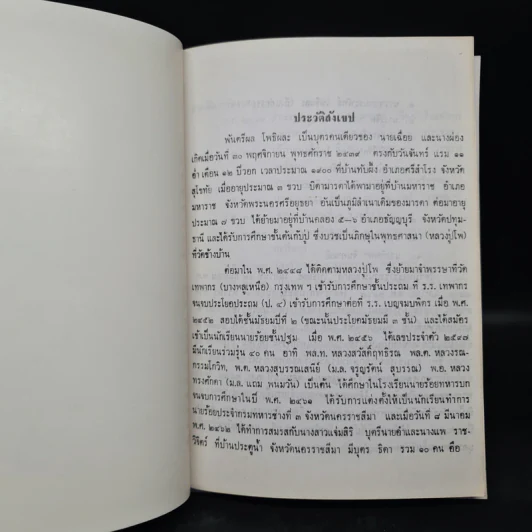 ประวัติสังเขป
พันตรีผล โพธิผละ เป็นบุตรคนเดียวของ นายเฉื่อย และนางผ่อง
เกิดเมื่อวันที่ ๓๐ พฤศจิกายน พุทธศักราช ๒๔๓๙ ตรงกับวันจันทร์ แรม ๑๑
ค่ำ เดือน ๑๒ ปีวอก เวลาประมาณ ๑๙๐๐ ที่บ้านทับผึ้ง อำเภอศรีสำโรง จังหวัด
สุโขทัย เมื่ออายุประมาณ ๓ ขวบ บิดามารดาได้พามาอยู่ที่บ้านมหาราช อำเภอ
มหาราช จังหวัดพระนครศรีอยุธยา อันเป็นภูมิลำเนาเดิมของมารดา ต่อมาอายุ
ประมาณ ๗ ขวบ ได้ย้ายมาอยู่ที่บ้านคลอง ๕–๖ อำเภอธัญญบุรี จังหวัดปทุม-
ธานี และได้รับการศึกษาชั้นต้นกับปู่ ซึ่งบวชเป็นภิกษุในพุทธศาสนา (หลวงปู่โพ)
ที่วัดข้างบ้าน
ต่อมาใน พ.ศ. ๒๔๔๘ ได้ติดตามหลวงปู่โพ ซึ่งย้ายมาจำพรรษาที่วัด
เทพากร (บางพลูเหนือ) กรุงเทพ ฯ เข้ารับการศึกษาชั้นประถม ที่ ร.ร. เทพากร
จนจบประโยคประถม (ป. ๔) เข้ารับการศึกษาต่อที่ ร.ร. เบญจมบพิตร เมื่อ พ.ศ.
๒๔๕๒ สอบได้ชั้นมัธยมปีที่ ๒ (ขณะนั้นประโยคมัธยมมี ๓ ชั้น) และได้สมัคร
เข้าเป็นนักเรียนนายร้อยชั้นปฐม เมื่อ พ.ศ. ๒๔๕๖ ได้เลขประจำตัว ๒๕๙๗
มีนักเรียนร่วมรุ่น ๔๐ คน อาทิ พล.ท. หลวงสวัสดิ์ฤทธิรณ พล.ต. หลวงรณ-
กรรมโกวิท, พ.ต. หลวงสุบรรณเสนีย์ (ม.ล. จรูญรัตน์ สุบรรณ) พ.อ. หลวง
ทรงศักดา (ม.ล. แถม พนมวัน) เป็นต้น ได้ศึกษาในโรงเรียนนายร้อยทหารบก
จนจบการศึกษาในปี พ.ศ. ๒๔๖๑ ได้รับการแต่งตั้งให้เป็นนักเรียนทำการ
นายร้อยประจำกรมทหารช่างที่ ๓ จังหวัดนครราชสีมา และเมื่อวันที่ ๔ มีนาคม
พ.ศ. ๒๔๖๒ ได้ทำการสมรสกับนางสาวแจ่มสิริ บุตรีนายอ่ำและนางแพ ราช-
วิจิตร์ ที่บ้านประตูน้ำ จังหวัดนครราชสีมา มีบุตร ธิดา รวม ๑๐ คน คือ